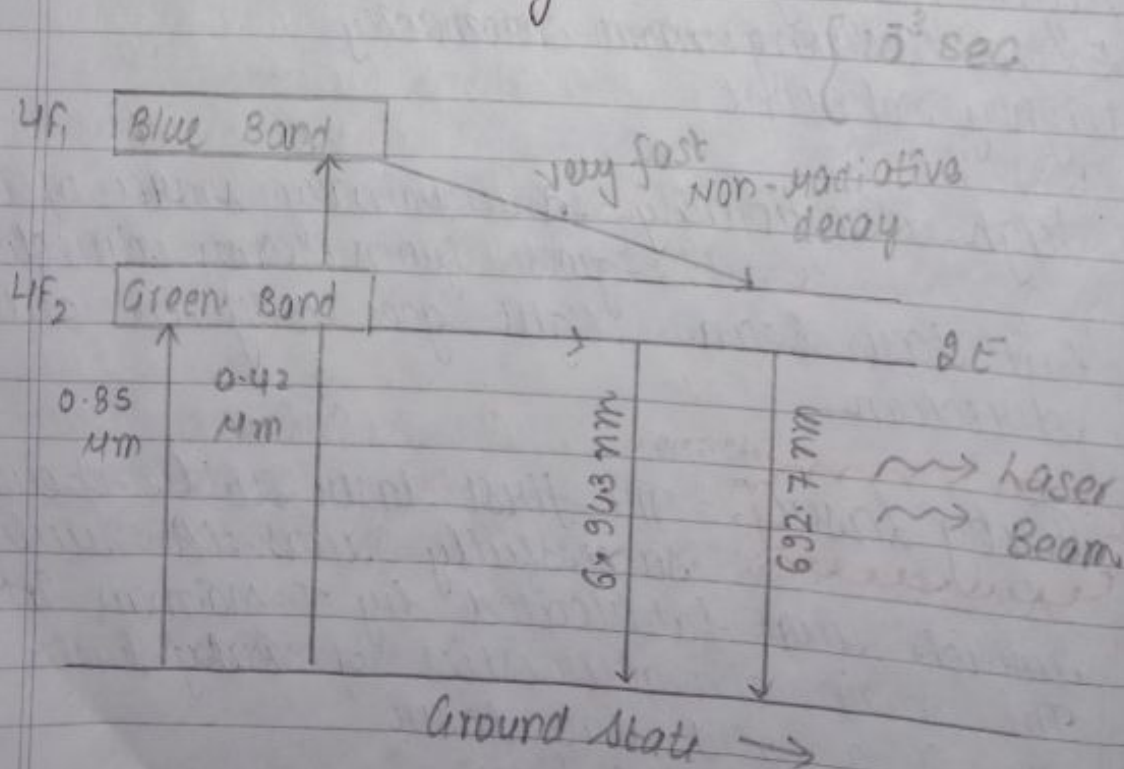 10̄³ sec
4F₁ Blue Band
very fast
Non-radiative
decay
4F₂ Green Band
2E
0.85
μm
0.42
μm
6x 943 nm
692.7 nm
Laser
Beam
Ground State